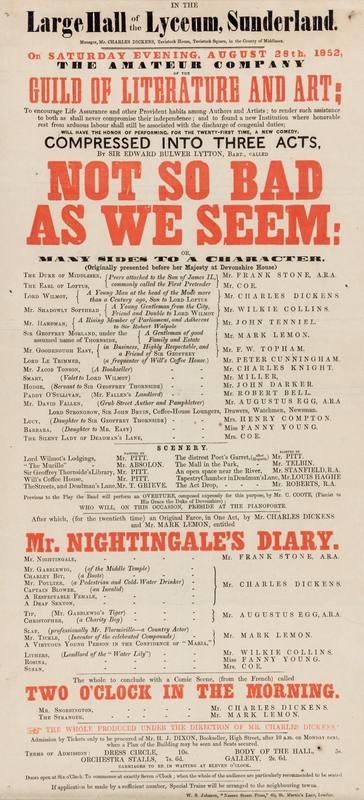 IN THE
Large Hall of the Lyceum, Sunderland.
Manager, Mr. CHARLES DICKENS, Tavistock House, Tavistock Square, in the County of Middlesex.
On SATURDAY EVENING, AUGUST 28th, 1852,
THE AMATEUR COMPANY
OF THE
GUILD OF LITERATURE AND ART;
To encourage Life Assurance and other Provident habits among Authors and Artists; to render such assistance
to both as shall never compromise their independence; and to found a new Institution where honorable
rest from arduous labour shall still be associated with the discharge of congenial duties;
WILL HAVE THE HONOR OF PERFORMING, FOR THE TWENTY-FIRST TIME, A NEW COMEDY,
COMPRESSED INTO THREE ACTS,
By SIR EDWARD BULWER LYTTON, BART., CALLED
NOT SO BAD
AS WE SEEM:
OR,
MANY SIDES TO A CHARACTER.
(Originally presented before her Majesty at Devonshire House)
THE DUKE OF MIDDLESEX, (Peers attached to the Son of James II., Mr. FRANK STONE, A.R.A.
THE EARL OF LOFTUS, commonly called the First Pretender Mr. COE.
LORD WILMOT, A Young Man at the head of the Mode more than a Century ago, Son to LORD LOFTUS Mr. CHARLES DICKENS
MR. SHADOWLY SOFTHEAD, A Young Gentleman from the City, Friend and Double to LORD WILMOT Mr. WILKIE COLLINS.
MR. HARDMAN, A Rising Member of Parliament, and Adherent to Sir Robert Walpole Mr. JOHN TENNIEL.
SIR GEOFFREY MORLAND, under the assumed name of THORNSIDE, A Gentleman of good Family and Estate Mr. MARK LEMON.
MR. GOODENOUGH EASY, in Business, Highly Respectable, and a Friend of SIR GEOFFREY Mr. F. W. TOPHAM.
LORD LE TRIMMER, (a frequenter of Will's Coffee House.) Mr. PETER CUNNINGHAM.
MR. JACOB TONSON, (A Bookseller) Mr. CHARLES KNIGHT.
SMART, (Valet to LORD WILMOT) Mr. MILLER.
HODGE, (Servant to SIR GEOFFREY THORNSIDE) Mr. JOHN DARKER.
PADDY O'SULLIVAN, (MR. FALLEN'S Landlord) Mr. ROBERT BELL.
MR. DAVID FALLEN, (Grub Street Author and Pamphleteer) Mr. AUGUSTUS EGG, A.R.A
LORD STRONGBOW, SIR JOHN BRUIN, Coffee-House Loungers, Drawers, Watchmen, Newsman.
LUCY, (Daughter to SIR GEOFFREY THORNSIDE) Mrs. HENRY COMPTON.
BARBARA, (Daughter to MR. EASY) Miss FANNY YOUNG.
THE SILENT LADY OF DEADMAN'S LANE, Mrs. COE.
SCENERY.
PAINTED BY PAINTED BY
Lord Wilmot's Lodgings, Mr. PITT. The distrest Poet's Garret, Mr. PITT.
"The Murillo" Mr. ABSOLON. The Mall in the Park, Mr. TELBIN.
Sir Geoffrey Thornside's Library, Mr. PITT. An open space near the River, Mr. STANFIELD, R.A.
Will's Coffee House, Mr. PITT. Tapestry Chamber in Deadman's Lane, Mr. LOUIS HAGHE
The Streets, and Deadman's Lane, Mr. T. GRIEVE. The Act Drop, Mr. ROBERTS, R.A.
Previous to the Play the Band will perform an OVERTURE, composed expressly for this purpose, by Mr. C. COOTE, (Pianist to
His Grace the Duke of Devonshire)
WHO WILL, ON THIS OCCASION, PRESIDE AT THE PIANOFORTE
After which, (for the twentieth time) an Original Farce, in One Act, by Mr. CHARLES DICKENS
and Mr. MARK LEMON, entitled
Mr. NIGHTINGALE'S DIARY.
MR. NIGHTINGALE, Mr. FRANK STONE, A.R.A.
MR. GABBLEWIG, (of the Middle Temple)
CHARLEY BIT, (a Boots)
MR. POULTER, (a Pedestrian and Cold-Water Drinker)
CAPTAIN BLOWER, (an Invalid)
A RESPECTABLE FEMALE,
A DEAF SEXTON, Mr. CHARLES DICKENS.
TIP, (MR. GABBLEWIG'S Tiger)
CHRISTOPHER, (a Charity Boy) Mr. AUGUSTUS EGG, A.R.A.
SLAP, (professionally Mr. Flormiville—a Country Actor)
MR. TICKLE, (Inventor of the celebrated Compounds)
A VIRTUOUS YOUNG PERSON IN THE CONFIDENCE OF "MARIA," Mr. MARK LEMON.
LITHERS, (Landlord of the "Water Lily") Mr. WILKIE COLLINS.
ROSINA, Miss FANNY YOUNG.
SUSAN, Mrs. COE.
The whole to conclude with a Comic Scene, (from the French) called
TWO O'CLOCK IN THE MORNING.
MR. SNOBBINGTON, Mr. CHARLES DICKENS.
THE STRANGER, Mr. MARK LEMON.
THE WHOLE PRODUCED UNDER THE DIRECTION OF MR. CHARLES DICKENS.
Admission by Tickets only to be procured of Mr. R. J. DIXON, Bookseller, High Street, after 10 a.m. on MONDAY next,
when a Plan of the Building may be seen and Seats secured.
TERMS OF ADMISSION: DRESS CIRCLE, 10s. BODY OF THE HALL, 5s.
ORCHESTRA STALLS, 7s. 6d. GALLERY, 2s. 6d.
CARRIAGES TO BE IN WAITING AT ELEVEN O'CLOCK.
Doors open at Six o'Clock. To commence at exactly Seven o'Clock; when the whole of the audience are particularly recommended to be seated
If application be made by a sufficient number, Special Trains will be arranged to the neighbouring towns.
W. S. Johnson, "Nassau Steam Press," 60, St. Martin's Lane, London.